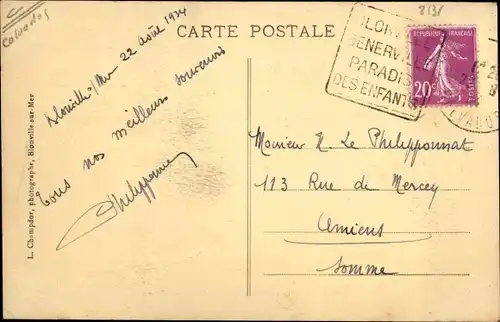 Calvados
CARTE POSTALE
Blonville s/Mer 22 août 1934
Tous nos meilleurs souvenirs
L. Champdor, photographe, Blonville-sur-Mer
8131
BLONV
BENERVI
PARADIS
DES ENFANTS
REPUBLIQUE FRANÇAISE
20c
Monsieur H. Le Philipponnat
113 Rue de Mercey
Amiens
Somme